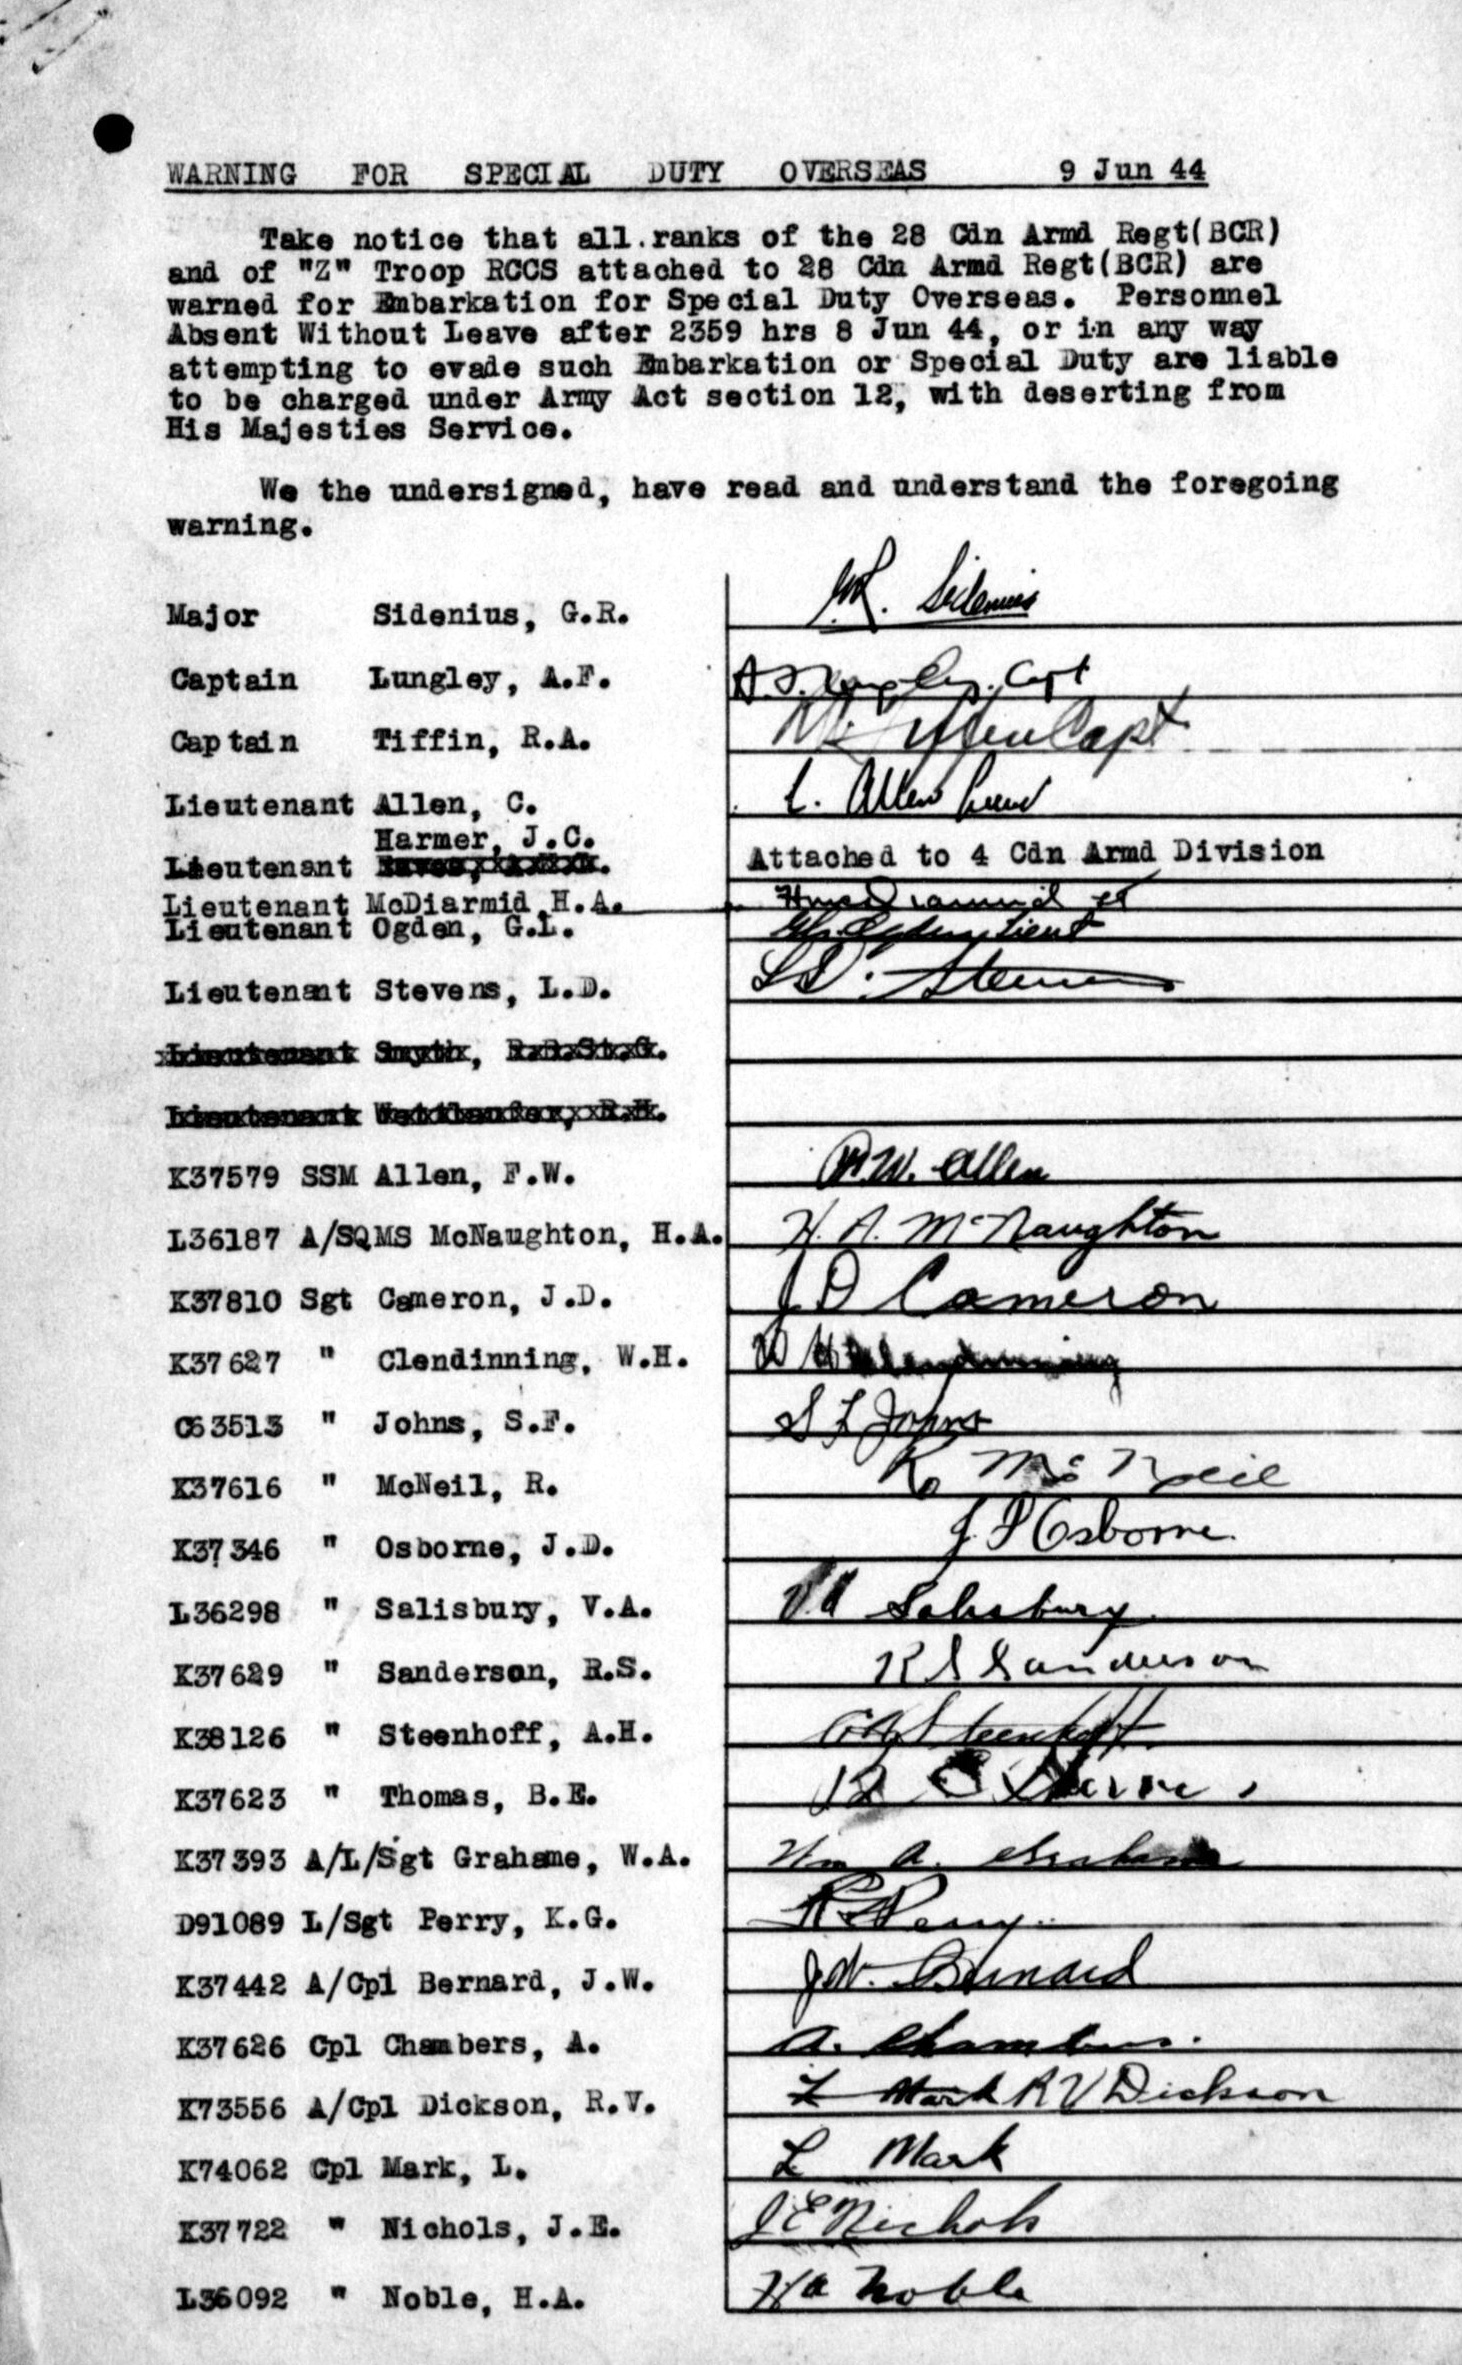 WARNING FOR SPECIAL DUTY OVERSEAS 9 Jun 44
Take notice that all ranks of the 28 Cdn Armd Regt(BCR)
and of "Z" Troop RCCS attached to 28 Cdn Armd Regt(BCR) are
warned for Embarkation for Special Duty Overseas. Personnel
Absent Without Leave after 2359 hrs 8 Jun 44, or in any way
attempting to evade such Embarkation or Special Duty are liable
to be charged under Army Act section 12, with deserting from
His Majesties Service.
We the undersigned, have read and understand the foregoing
warning.
Major Sidenius, G.R. G.R. Sidenius
Captain Lungley, A.F. A.F. Lungley, Capt
Captain Tiffin, R.A. Tiffin Capt
Lieutenant Allen, C. C. Allen Lieut
Harmer, J.C.
Lieutenant Attached to 4 Cdn Armd Division
Lieutenant McDiarmid H.A. HMcDiarmid Lt
Lieutenant Ogden, G.L. GL Ogden, Lieut
Lieutenant Stevens, L.D. L.D. Stevens
Lieutenant Smyth, R.R.St.G.
Lieutenant R.H.
K37579 SSM Allen, F.W. F.W. Allen
L36187 A/SQMS McNaughton, H.A. H. A. McNaughton
K37810 Sgt Cameron, J.D. J D Cameron
K37627 " Clendinning, W.H. W H Clendinning
C63513 " Johns, S.F. S F Johns
K37616 " McNeil, R. R McNeil
K37346 " Osborne, J.D. J. D Osborne
L36298 " Salisbury, V.A. V A Salisbury
K37629 " Sanderson, R.S. R S Sanderson
K38126 " Steenhoff, A.H. A H Steenhoff
K37623 " Thomas, B.E. B E
K37393 A/L/Sgt Grahame, W.A. Wm A. Grahame
D91089 L/Sgt Perry, K.G. K G Perry
K37442 A/Cpl Bernard, J.W. J W. Bernard
K37626 Cpl Chambers, A. A. Chambers.
K73556 A/Cpl Dickson, R.V. L Mark R V Dickson
K74062 Cpl Mark, L. L Mark
K37722 " Nichols, J.E. J E Nichols
L36092 " Noble, H.A. H A Noble